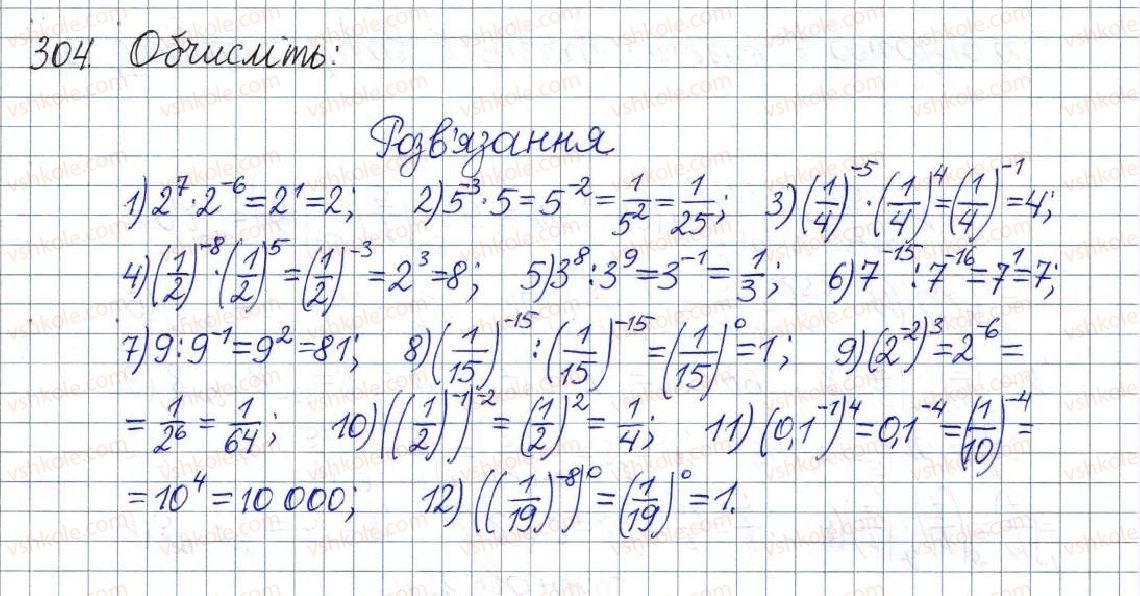 304. Обчисліть:
Розв'язання
1) 2^7 · 2^-6 = 2^1 = 2; 2) 5^-3 · 5 = 5^-2 = 1/5^2 = 1/25; 3) (1/4)^-5 · (1/4)^4 = (1/4)^-1 = 4;
4) (1/2)^-8 · (1/2)^5 = (1/2)^-3 = 2^3 = 8; 5) 3^8 : 3^9 = 3^-1 = 1/3; 6) 7^-15 : 7^-16 = 7^1 = 7;
7) 9 : 9^-1 = 9^2 = 81; 8) (1/15)^-15 : (1/15)^-15 = (1/15)^0 = 1; 9) (2^-2)^3 = 2^-6 =
= 1/2^6 = 1/64; 10) ((1/2)^-1)^-2 = (1/2)^2 = 1/4; 11) (0,1^-1)^4 = 0,1^-4 = (1/10)^-4 =
= 10^4 = 10 000; 12) ((1/19)^-8)^0 = (1/19)^0 = 1.
vshkole.com